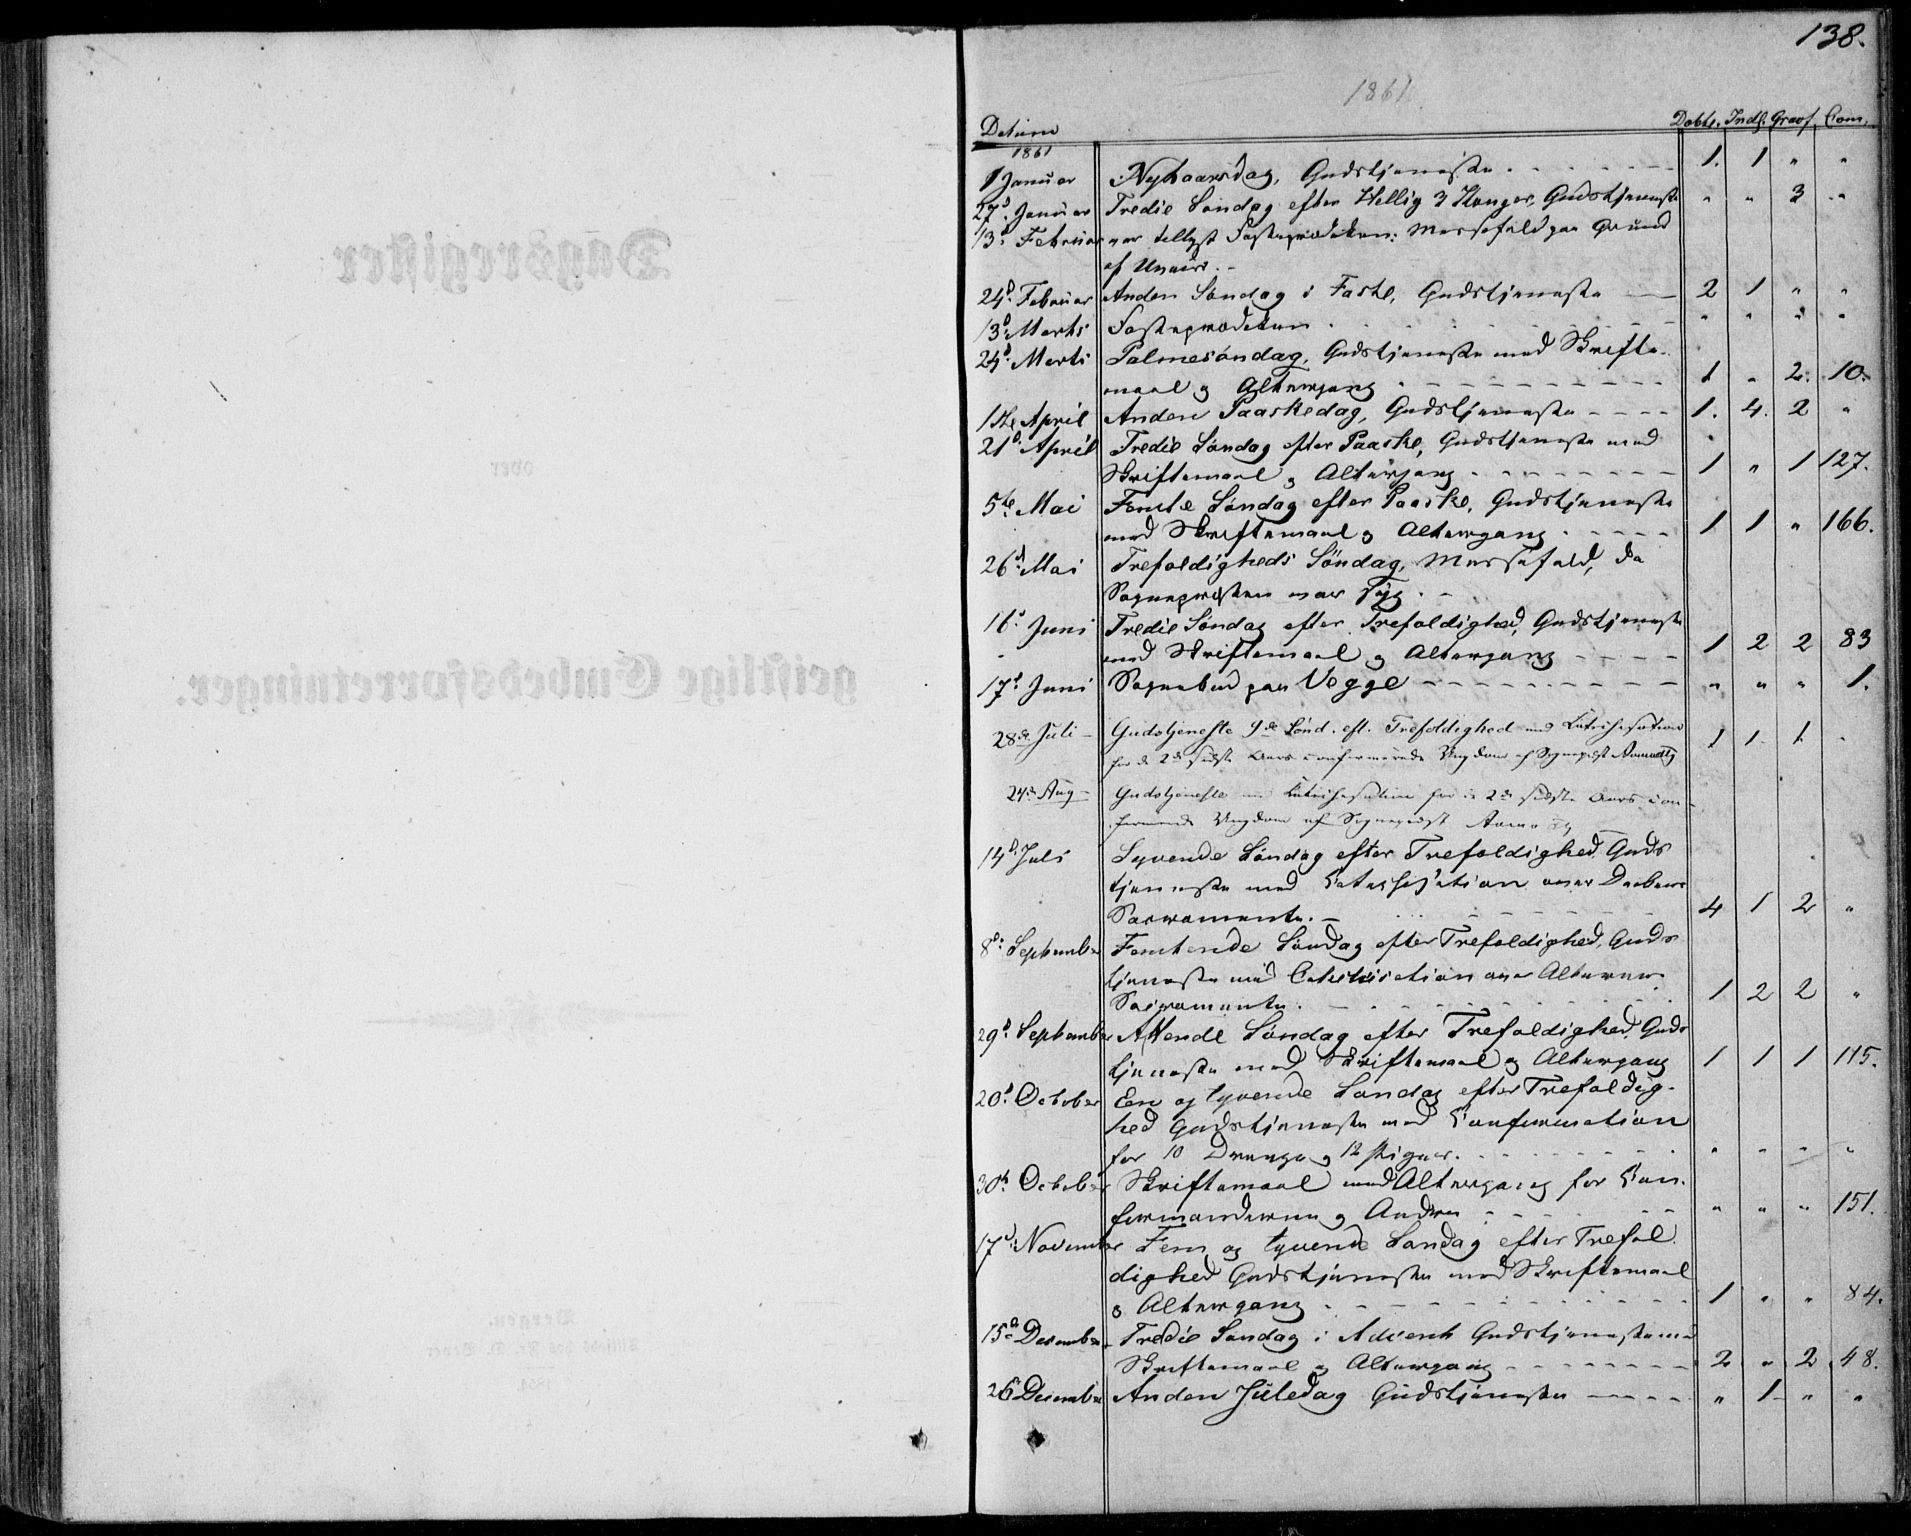 138.
1861
Datum Dobte. Indl. Graf. Com.
1861
1 Januar Nytaarsdag, Gudstjeneste 1. 1 " "
27d. Januar Tredie Søndag efter Hellig 3 Konger, Gudstjeneste " " 3 "
13d. Februar var tillyst Fasteprædiken: Messefald paa Grund
af Uveir.
24d. Februar Anden Søndag i Faste, Gudstjeneste 2 1 " "
13d. Marts Fasteprædiken " " " "
24d. Marts Palmesøndag, Gudstjeneste med Skrifte-
maal og Altergang 1 " 2. 10.
1ste April Anden Paaskedag, Gudstjeneste 1. 4. 2 "
21d. April Tredie Søndag efter Paaske, Gudstjeneste med
Skriftemaal og Altergang 1 " 1 127.
5te Mai Femte Søndag efter Paaske, Gudstjeneste
med Skriftemaal og Altergang 1 1 " 166.
26d. Mai Trefoldigheds Søndag, Messefald, da
Sognepræsten var syg.
16d. Juni Tredie Søndag efter Trefoldighed, Gudstjeneste
med Skriftemaal og Altergang 1 2 2 83
17d. Juni Sognebud paa Vegge " " " 1.
28de Juli Gudstjeneste 9de Sønd. eft. Trefoldighed med Katechisation
for de 2de sidste Aars confirmerede Ungdom af Sognepræst 1 1 1 "
24de Aug Gudstjeneste med Katechisation for de 2de sidste Aars con-
firmerede Ungdom af Sognepræst
14d. Juli Syvende Søndag efter Trefoldighed, Guds
tjeneste med Catechisation over Daabens
Sacramente. 4 1 2 "
8d. September Femtende Søndag efter Trefoldighed, Guds
tjeneste med Catechisation over Alterens
Sacramente. 1 2 2 "
29d. September Attende Søndag efter Trefoldighed, Guds
tjeneste med Skriftemaal og Altergang 1 1 1 115.
20d. October Een og tyvende Søndag efter Trefoldig-
hed Gudstjeneste med Confirmation
for 10 Drenge og 12 Piger. " " " "
30d. October Skriftemaal med Altergang for Con-
firmanderne og Andre " " " 151.
17d. November Fem og tyvende Søndag efter Trefol
dighed Gudstjeneste med Skriftemaal
og Altergang 1 " " 84.
15d. December Tredie Søndag i Advent Gudstjeneste med
Skriftemaal og Altergang 2 " 2 48.
26 December Anden Juledag Gudstjeneste " 1 " "
Dagsregister
over
geistlige Embedsforretninger.
Bergen.